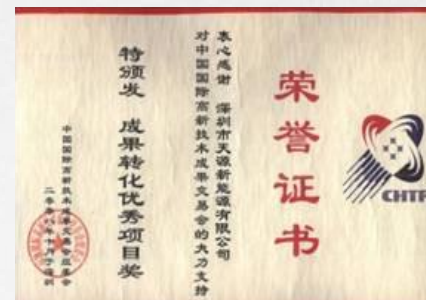 CHTF
荣誉证书
衷心感谢 深圳市天源新能源有限公司
对中国国际高新技术成果交易会的大力支持
特颁发 成果转化优秀项目奖
中国国际高新技术成果交易会组委会